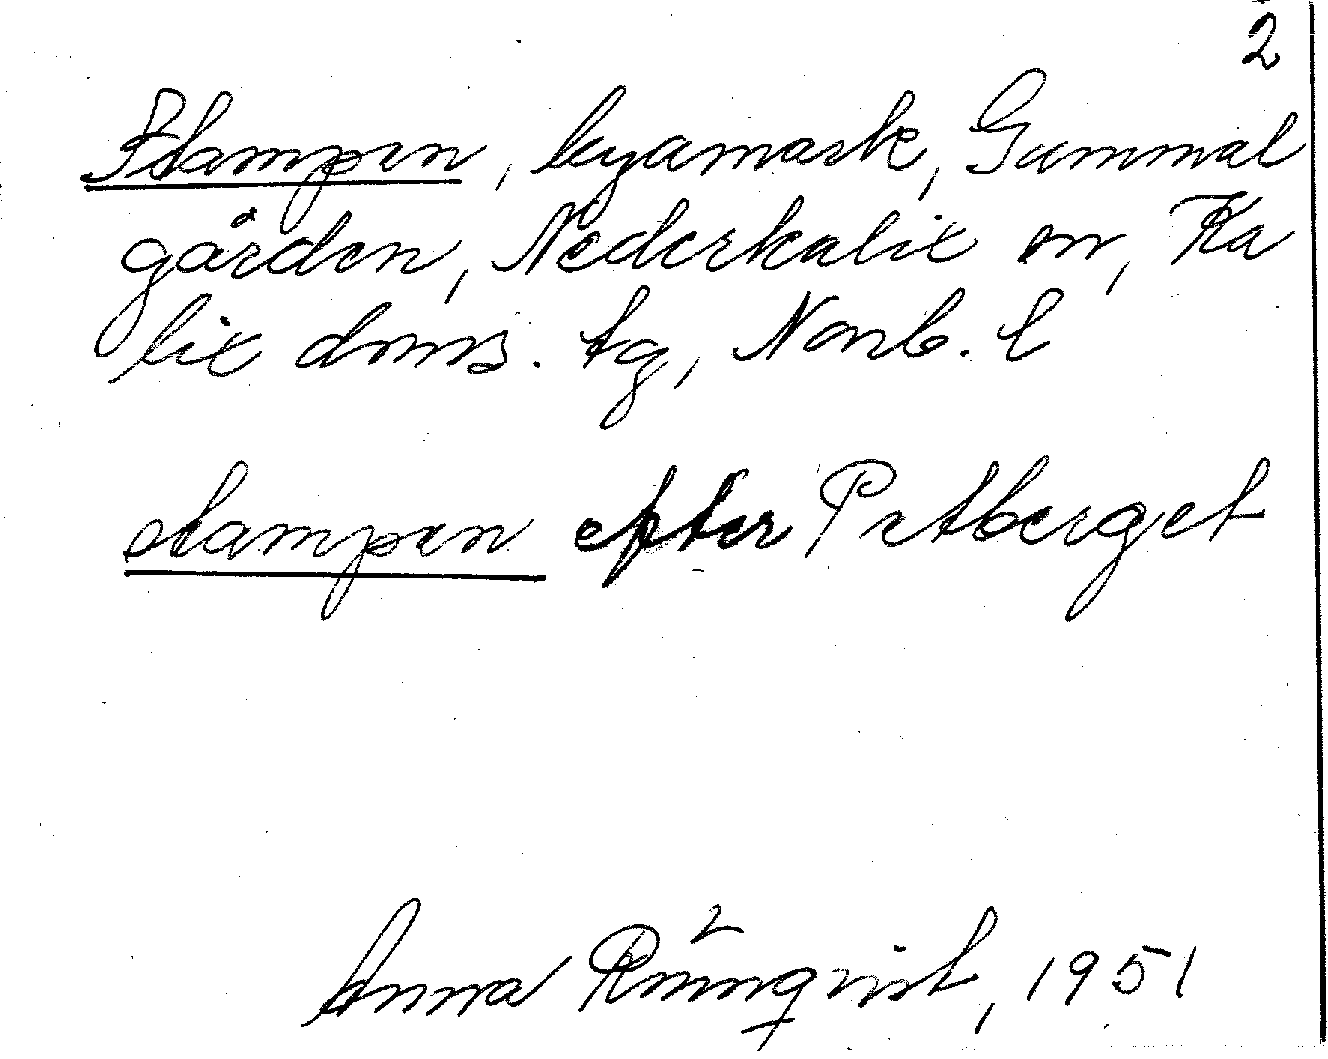 2
Stampen, byamark, Gammal
gården, Nederkalix sn, Ka
lix doms. tg, Norrb. l
stampen efter Prtberget
Anna Rönnqvist, 1951